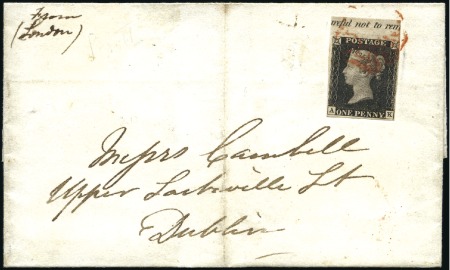 From
(London)
areful not to rem
POSTAGE
ONE PENNY
A K
Messrs Cambell
Upper Sackville St
Dublin